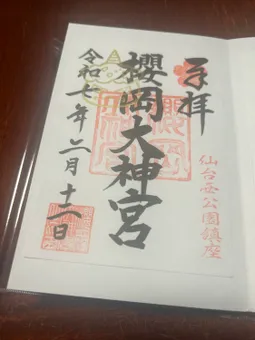 奉拝
仙台西公園鎮座
櫻岡大神宮
令和七年二月十一日